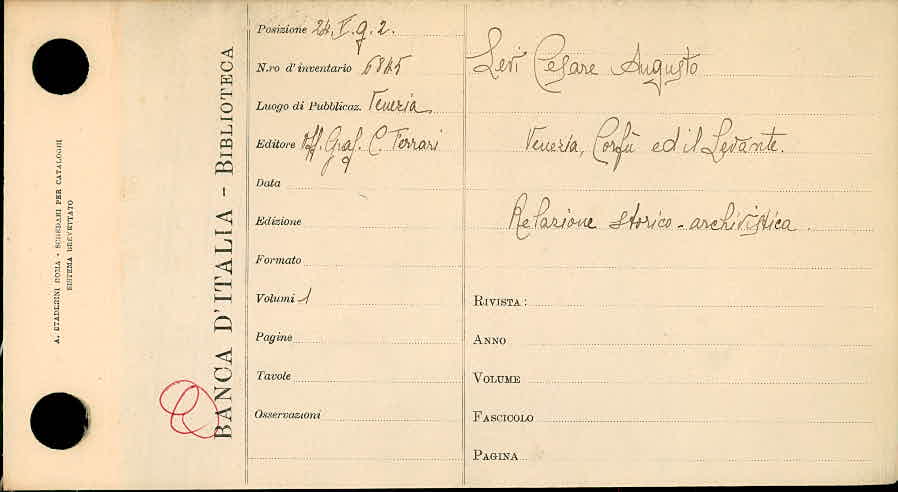 A. STADERINI ROMA - SCHEDARI PER CATALOGHI
SISTEMA BREVETTATO
BANCA D'ITALIA - BIBLIOTECA
Posizione 24. V. g. 2.
N.ro d'inventario 6845
Luogo di Pubblicaz. Venezia
Editore Off. Graf. C. Ferrari
Data
Edizione
Formato
Volumi 1
Pagine
Tavole
Osservazioni
Levi Cesare Augusto
Venezia, Corfù ed il Levante.
Relazione storico-archivistica.
RIVISTA:
ANNO
VOLUME
FASCICOLO
PAGINA